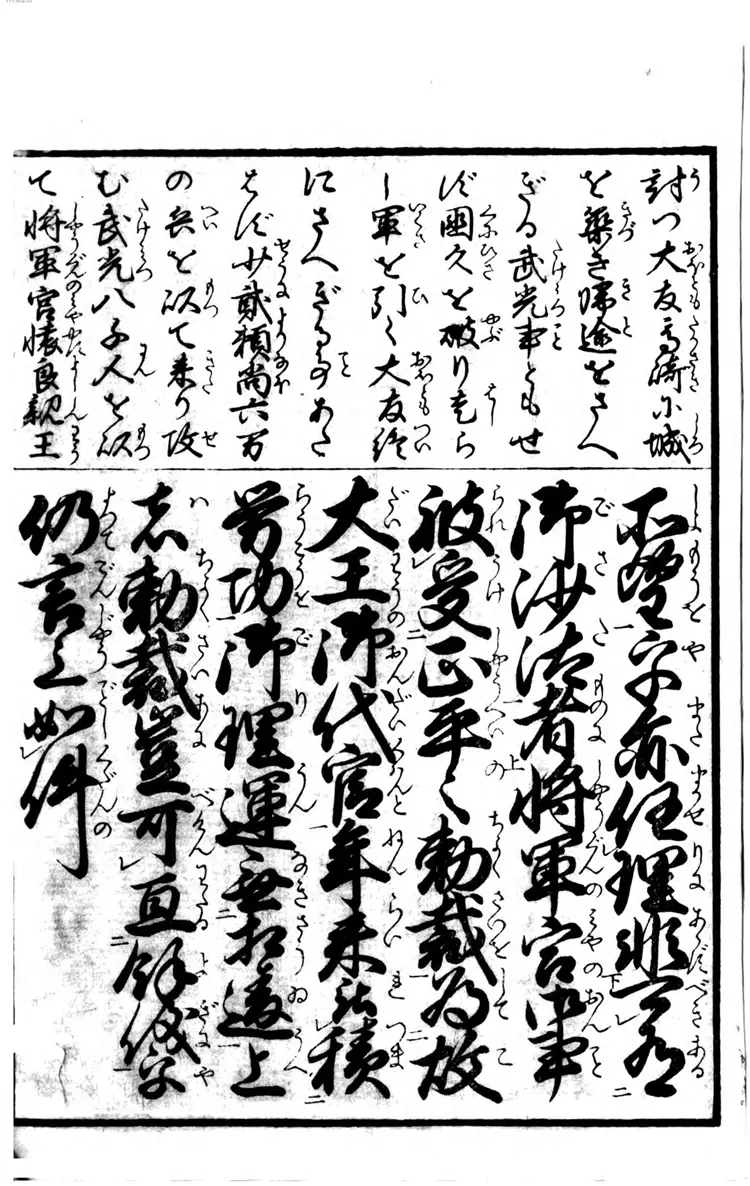 討つ大友高崎小城
を築き帰途をさへ
ぎる武光事ともせ
ず國久を破り走ら
し軍を引く大友終
にさへぎる事あた
はず少貳頼尚六万
の兵を以て来り攻
む武光八千人を以
て将軍宮懐良親王
所望乎亦任理非可有
御沙汰者将軍宮御事
被受正平之勅裁為故
大王御代官年来被積
労功御理運無相違上
者勅裁豈可亘餘儀乎
仍言上如件